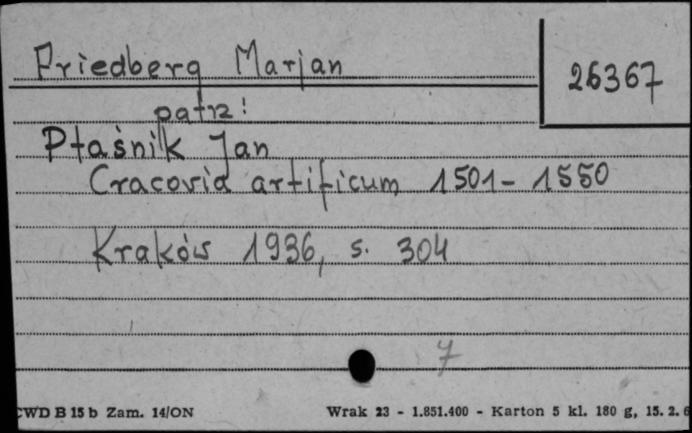 Friedberg Marjan
26367
patrz!
Ptaśnik Jan
Cracovia artificum 1501-1550
Kraków 1936, s. 304
7
CWD B 15 b Zam. 14/ON
Wrak 23 - 1.851.400 - Karton 5 kl. 180 g, 15. 2. 6